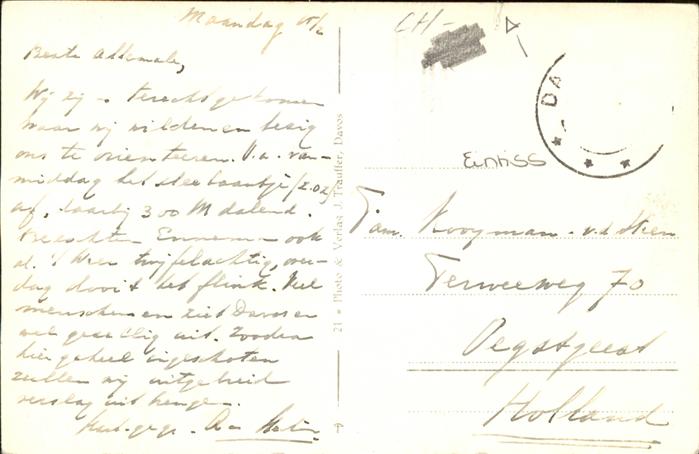 Maandag
Beste Allemaal,
Wij zijn terechtgekomen
waar wij wilden en bezig
ons te orienteeren. V.a. van-
middag het sleebaantje
af, daarbij 300 M dalend.
Ennema ook
al. 't Weer twijfelachtig, over-
dag dooit het flink. Veel
menschen en ziet Davos er
wel gezellig uit. Zoodra
hier geheel ingesloten
zullen wij uitgebreid
verslag uitbrengen.
Hart. gegr.
21 Photo & Verlag J. Trauffer, Davos
CH-
DA
Fam. Kooyman - v.d. Steen
Terweeweg 70
Oegstgeest
Holland